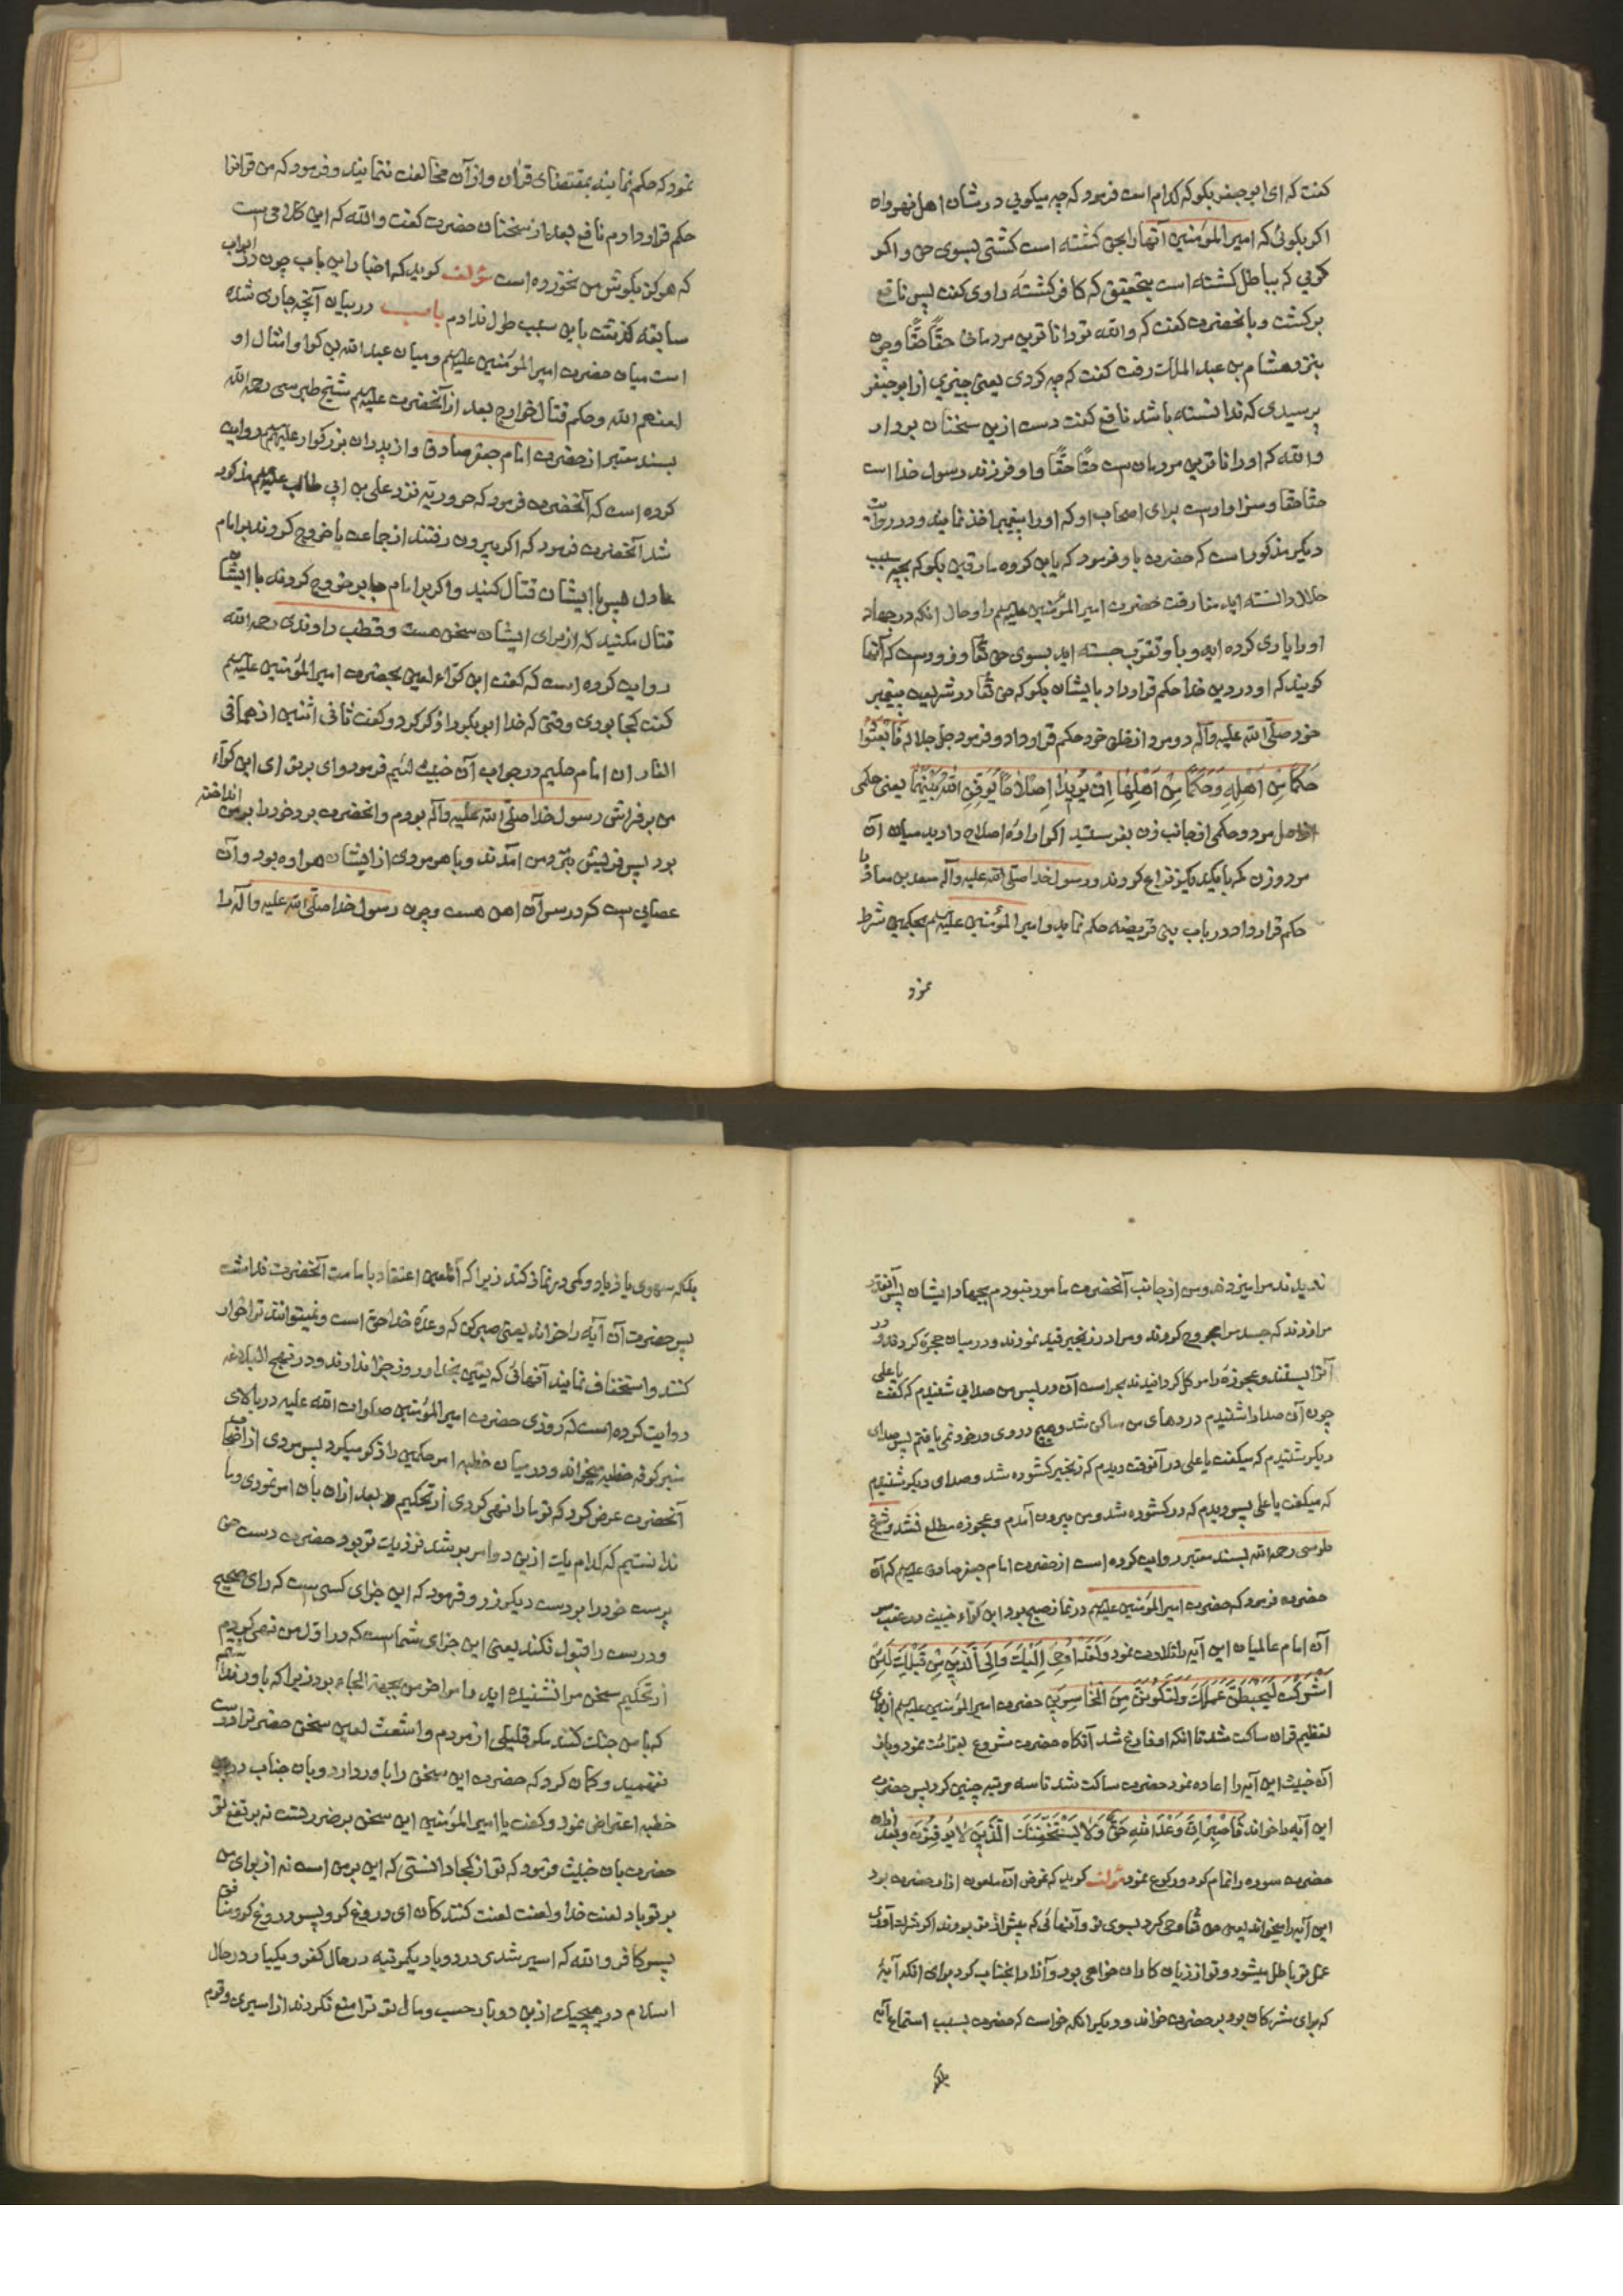 کفت که ای ابو جعفر بکو که کدام است فرمود که چه میکویی در شان اهل نهروان
اکر بکوئی که امیر المؤمنین آنها را بحق کشته است کشتی بسوی حق و اکر
کویی که بباطل کشته است بتحقیق که کافر کشتهٔ راوی کفت پس نافع
برکشت و بانحضرت کفت که والله تو داناترین مردمانی حقًا حقًا و چون
بنزد هشام بن عبد الملک رفت کفت که چه کردی یعنی چیزی از ابو جعفر
پرسیدی که ندانسته باشد نافع کفت دست ازین سخنان بردار
والله که او داناترین مردمان ست حقًا حقًا و او فرزند رسول خدا است
حقا حقا و سزاوارست برای اصحاب او که او را پیغمبر اخذ نمایند و در روایت
دیکر مذکور است که حضرت باو فرمود که باین کروه مارقین بکو که بچه سبب
حلال دانسته اید مفارقت حضرت امیر المؤمنین علیه‌السلم را و حال انکه در جهاد
او را یاری کرده اید و باو تقرب جسته اید بسوی حق تعا و زودست که آنها
کویند که او در دین خدا حکم قرار داد بایشان بکو که حق تعا در شریعت پیغمبر
خود صلّی الله علیه وآله دو مرد از خلق خود حکم قرار داد و فرمود جل جلاله فَابْعَثُوا
حَکَمًا مِنْ اَهْلِهِ وَحَکَمًا مِنْ اَهْلِهَا اِنْ یُرِیدَا اِصْلَاحًا یُوَفِّقِ اللهُ بَیْنَهُمَا یعنی حکمی
از اهل مرد و حکمی از جانب زن بفرستید اکر ارادهٔ اصلاح دارید میان آن
مرد و زن که با یکدیکر نزاع کردند و رسول خدا صلّی الله علیه وآله سعد بن معاذ را
حکم قرار داد در باب بنی قریضه حکم نماید و امیر المؤمنین علیه‌السلم بحکمین شرط
نمود
نمود که حکم نمایند بمقتضای قرآن و از آن مخالفت ننمایند و فرمود که من قرانرا
حکم قرار دادم نافع بعد از سخنان حضرت کفت والله که این کلامی ست
که هرکز بکوش من نخورده است مؤلف کوید که اخبار این باب چون در ابواب
سابقه کذشت باین سبب طول ندادم باب در بیان آنچه جاری شده
است میان حضرت امیر المؤمنین علیه‌السلم و میان عبد الله بن کوا و امثال او
لعنهم الله و حکم قتال خوارج بعد از آنحضرت علیه‌السلم شیخ طبرسی رحمه الله
بسند معتبر از حضرت امام جعفر صادق و از پدران بزرکوار علیهم‌السلم روایت
کرده است که آنحضرت فرمود که حروریه نزد علی بن ابی طالب علیه‌السلم مذکور
شد آنحضرت فرمود که اکر بیرون رفتند از جماعت یا خروج کردند بر امام
عادل پس با ایشان قتال کنید و اکر بر امام جابر خروج کردند با ایشان
قتال مکنید که از برای ایشان سخنی هست و قطب راوندی رحمه الله
روایت کرده است که کفت ابن کوّاء لعین بحضرت امیر المؤمنین علیه‌السلم
کفت کجا بودی وقتی که خدا ابو بکر را ذکر کرد و کفت ثانی اثنین اذ هما فی
الغار ان امام حلیم در جواب آن خبیث لئیم فرمود وای بر تو ای ابن کوّاء
من بر فراش رسول خدا صلّی الله علیه وآله بودم و انحضرت برد خود را بر من انداخته
بود پس قریش بنزد من آمدند و با هر مردی از ایشان هراوه بود و آن
عصایی ست که در سر آن اهن هست و چون رسول خدا صلّی الله علیه وآله را
ندیدند مرا میزدند و من از جانب آنحضرت مامور نبودم بجهاد ایشان پس آنقدر
مرا زدند که جسد مرا مجروح کردند و مرا در زنجیر قید نمودند و در میان حجره کردند و در
آنرا ببستند و عجوزهٔ را موکل کردانیدند بحراست آن در پس من صدایی شنیدم که کفت یا علی
چون آن صدا را شنیدم دردهای من ساکن شد و هیچ دردی در خود نمی یافتم پس صدای
دیکر شنیدم که میکفت یا علی در آنوقت دیدم که زنجیر کشوده شد و صدای دیکر شنیدم
که میکفت یا علی پس دیدم که در کشوده شد و من بیرون آمدم و عجوزه مطلع نشد و شیخ
طوسی رحمه الله بسند معتبر روایت کرده است از حضرت امام جعفر صادق علیه‌السلم که آن
حضرت فرمود که حضرت امیر المؤمنین علیه‌السلم در نماز صبح بود ابن کوّاء خبیث در عقب سر
آن امام عالمیان این آیه را تلاوت نمود وَلَقَدْ اُوحِیَ اِلَیْکَ وَاِلَی الَّذِینَ مِنْ قَبْلِکَ لَئِنْ
اَشْرَکْتَ لَیَحْبَطَنَّ عَمَلُکَ وَلَتَکُونَنَّ مِنَ الْخَاسِرِینَ حضرت امیر المؤمنین علیه‌السلم از برای
تعظیم قران ساکت شد تا انکه او فارغ شد آنکاه حضرت شروع بقرائت نمود و باز
آن خبیث این آیه را اعاده نمود حضرت ساکت شد تا سه مرتبه چنین کرد پس حضرت
این آیه را خواند فَاصْبِرْ اِنَّ وَعْدَ اللهِ حَقٌّ وَلَا یَسْتَخِفَّنَّکَ الَّذِینَ لَا یُوقِنُونَ و بعد از ان
حضرت سوره را تمام کرد و رکوع نمود مؤلف کوید که غرض آن ملعون ازار حضرت بود
این آیه را میخواند یعنی حق تعا وحی کرد بسوی تو و آنهائی که پیش از تو بودند اکر شرک آوری
عمل تو باطل میشود و تو از زیان کاران خواهی بود و آنرا بانجناب کرد برای انکه آیهٔ
که برای مشرکان بود بر حضرت خواند و دیکر انکه خواست که حضرت بسبب استماع آیه
بلکه
بلکه سهوی یا زیاد و کمی در نماز کند زیرا که آنلعین اعتقاد بامامت آنحضرت نداشت
پس حضرت آن آیه را خواند یعنی صبر کن که وعدهٔ خدا حق است و نمیتوانند ترا خوار
کنند و استخفاف نمایند آنهائی که یقین بخدا و روز جزا ندارند و در نهج البلاغه
روایت کرده است که روزی حضرت امیر المؤمنین صلوات الله علیه در بالای
منبر کوفه خطبه میخواند و در میان خطبه امر حکمین را ذکر میکرد پس مردی از اصحاب
آنحضرت عرض کرد که تو ما را نهی کردی از تحکیم بعد ازان بان امر نمودی و ما
ندانستیم که کدام یک ازین دو امر برشد نزدیک تر بود حضرت دست حق
پرست خود را بر دست دیکر زد و فرمود که این جزای کسی ست که رای صحیح
و درست را قبول نکند یعنی این جزای شماست که در اوّل من نهی کردم
از تحکیم سخن مرا نشنیدید اید و امر اخر من بجهة الجاء بود زیرا که یاور نداشتم
که با من جنک کنند مکر قلیلی از مردم و اشعث لعین سخن حضرترا درست
نفهمید و کمان کرد که حضرت این سخن را باور دارد و بان جناب در
خطبه اعتراض نمود و کفت یا امیر المؤمنین این سخن بر ضرر تست نه بر نفع تو
حضرت بان خبیث فرمود که تو از کجا دانستی که این بر من است نه از برای من
بر تو باد لعنت خدا و لعنت لعنت کنندکان ای دروغ کو و پسر دروغ کو و منافق
پسر کافر والله که اسیر شدی در دو بار یکمرتبه در حال کفر و یکبار در حال
اسلام در هیچیک ازین دو بار حسب و مال تو ترا منع نکردند از اسیری و قوم